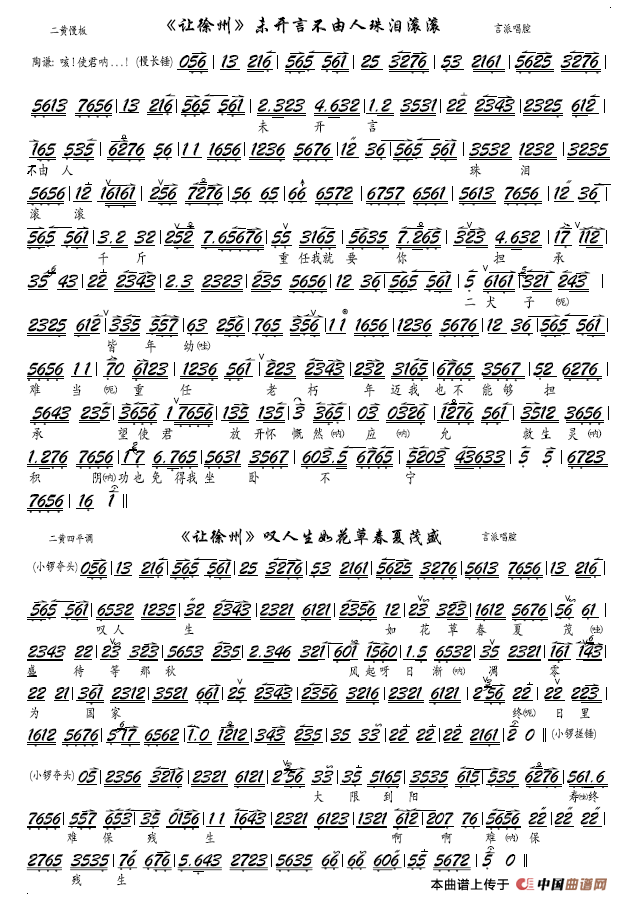 二黄慢板 《让徐州》未开言不由人珠泪滚滚 言派唱腔
陶谦:咳!使君呐...!(慢长锤) 056 | 13 216 | 565 561 | 25 3276 | 53 2161 | 5625 3276 |
5613 7656 | 13 216 | 565 561 | 2.323 4.632 | 1.2 3531 | 22 2343 | 2325 612 |
未 开 言
165 535 | 6276 56 | 11 1656 | 1236 5676 | 12 36 | 565 561 | 3532 1232 | 3235
不由人 珠 泪
5656 | 12 16161 | 256 7276 | 56 65 | 66 6572 | 6757 6561 | 5613 7656 | 12 36 |
滚 滚
565 561 | 3.2 32 | 252 7.65676 | 55 3165 | 5635 7.265 | 323 4.632 | 17 112 |
千 斤 重 任我就 要 你 担 承
35 43 | 22 2343 | 2.3 2323 | 235 5656 | 12 36 | 565 561 | 5 6161 | 321 243 |
二 犬 子(呃)
2325 612 | 335 557 | 63 256 | 765 356 | 11 1656 | 1236 5676 | 12 36 | 565 561 |
皆 年 幼(吐)
5656 11 | 70 6123 | 1236 561 | 223 2343 | 232 3165 | 6765 3567 | 52 6276 |
难 当(呃) 重 任 老 朽 年 迈我 也 不 能够 担
5643 235 | 3656 17656 | 135 135 | 3 365 | 03 0326 | 1276 561 | 3512 3656 |
承 望使君 放开怀 慨然(呐) 应(呐) 允 救生灵(呐)
1.276 7656 | 17 6.765 | 5631 3567 | 603.5 6765 | 5203 43633 | 5 5 | 6723
积 阴(呐)功也免 得我坐 卧 不 宁
7656 | 16 1 ‖
二黄四平调 《让徐州》叹人生如花草春夏茂盛 言派唱腔
(小锣夺头) 056 | 13 216 | 2321 2356 | 3235 2276 | 53 2161 | 5625 3276 | 5613 7656 | 13 216 |
565 561 | 6532 1235 | 32 2343 | 2321 6121 | 2356 12 | 23 323 | 1612 5676 | 56 61 |
叹人 生 如 花 草 春 夏 茂(吐)
2343 22 | 23 323 | 5653 235 | 2.346 321 | 601 1560 | 1.5 6532 | 3521 2321 | 161 143 |
盛 待 等那秋 风起呀 日渐(呐) 凋 零
22 21 | 361 2312 | 3521 661 | 25 2343 | 2356 3216 | 2321 6121 | 256 22 | 22 223 |
为 国家 终(呃) 日里
1612 5676 | 517 6562 | 1.0 1212 | 343 235 | 35 33 | 22 22 | 22 2161 | 2 0 ‖ (小锣搓锤)
(小锣夺头) 05 | 2356 3216 | 2321 6121 | 256 33 | 35 5165 | 3535 615 | 535 6276 | 561.6
大 限到阳 寿(吐)终
7656 | 557 653 | 35 0156 | 11 1643 | 2321 6123 | 1321 612 | 207 76 | 5656 22 | 22 22 |
难 保 残 生 啊 啊 难(呐)保
2765 3535 | 76 676 | 5.643 2723 | 5635 66 | 66 606 | 55 5672 | 5 0 ‖
残 生
本曲谱上传于 中国曲谱网